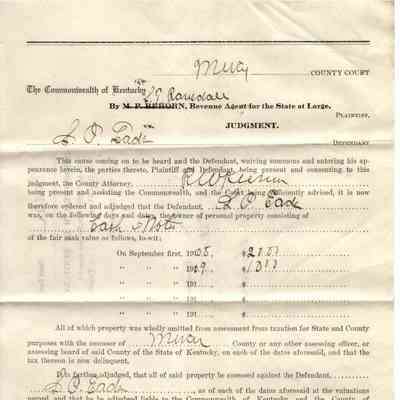 Mercer COUNTY COURT
The Commonwealth of Kentucky
By M. P. REHORN, Revenue Agent for the State at Large,
PLAINTIFF,
JUDGMENT.
DEFENDANT
This cause coming on to be heard and the Defendant, waiving summons and entering his ap-
pearance herein, the parties thereto, Plaintiff and Defendant, being present and consenting to this
judgment, the County Attorney
being present and assisting the Commonwealth, and the Court being sufficiently advised, it is now
therefore ordered and adjudged that the Defendant,
was, on the following days and dates, the owner of personal property consisting of
Cash & Notes
of the fair cash value as follows, to-wit:
On September first, 1908, $
" " " 1909,
" " " 191
" " " 191
" " " 191
All of which property was wholly omitted from assessment from taxation for State and County
purposes with the assessor of Mercer County or any other assessing officer, or
assessing board of said County of the State of Kentucky, on each of the dates aforesaid, and that the
tax thereon is now delinquent.
It is further adjudged, that all of said property be assessed against the Defendant
as of each of the dates aforesaid at the valuations